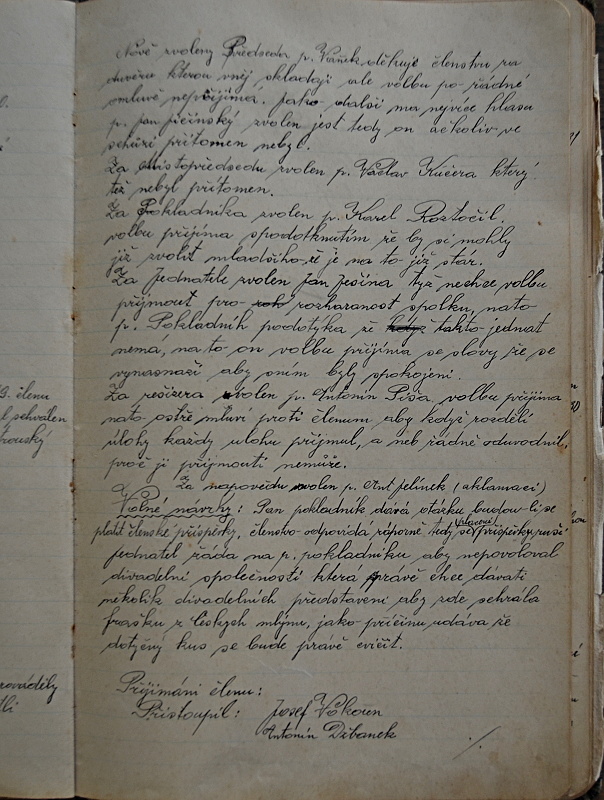 Nově zvolený Předseda p. Vaněk děkuje členstvu za
důvěru kterou vněj skládají ale volbu po řádné
omluvě nepřijímá. Jako další má nejvíce hlasů
p. Jan zvolen jest tedy on ačkoliv ve
schůzi přítomen nebyl.
Za místopředsedu zvolen p. Václav Kučera který
též nebyl přítomen.
Za Pokladníka zvolen p. Karel Roztočil.
volbu přijímá spodotknutím že by si mohly
již zvolit mladšího, že je na to již stár.
Za Jednatele zvolen Jan Ješina týž nechce volbu
přijmout pro rozháranost spolku, na to
p. Pokladník podotýká že takto jednat
nemá, na to on volbu přijímá se slovy že se
vynasnaží aby sním byly spokojeni.
Za režiséra zvolen p. Antonín Píša, volbu přijímá
na to ostře mluví proti členům aby když rozdělí
úlohy každý úlohu přijmul, a neb řádně odůvodnil,
proč ji přijmouti nemůže.
Za nápovědu zvolen p. Ant. Jelínek (aklamací)
Volné návrhy: Pan pokladník dává otázku budou-li se
platit členské příspěvky, členstvo odpovídá záporně tedy se placení příspěvků ruší
jednatel žádá na p. pokladníku aby nepovoloval
divadelní společnosti která právě chce dávati
několik divadelních představení aby zde sehrála
frašku z Českých mlýnů, jako příčinu udává že
dotyčný kus se bude právě cvičit.
Přijímání členů:
Přistoupil: Josef Vokoun
Antonín Džbánek
9. členů
schválen